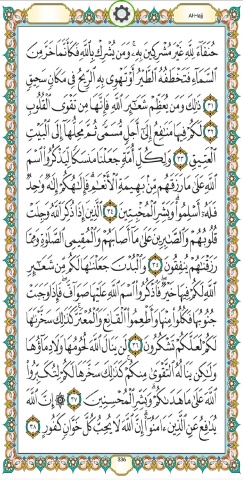 Al-Hajj
حُنَفَآءَ لِلَّهِ غَيْرَ مُشْرِكِينَ بِهِۦ وَمَن يُشْرِكْ بِٱللَّهِ فَكَأَنَّمَا خَرَّ مِنَ
ٱلسَّمَآءِ فَتَخْطَفُهُ ٱلطَّيْرُ أَوْ تَهْوِى بِهِ ٱلرِّيحُ فِى مَكَانٍ سَحِيقٍ
٣١ ذَٰلِكَ وَمَن يُعَظِّمْ شَعَٰٓئِرَ ٱللَّهِ فَإِنَّهَا مِن تَقْوَى ٱلْقُلُوبِ
٣٢ لَكُمْ فِيهَا مَنَٰفِعُ إِلَىٰٓ أَجَلٍ مُّسَمًّى ثُمَّ مَحِلُّهَآ إِلَى ٱلْبَيْتِ
ٱلْعَتِيقِ ٣٣ وَلِكُلِّ أُمَّةٍ جَعَلْنَا مَنسَكًا لِّيَذْكُرُوا۟ ٱسْمَ
ٱللَّهِ عَلَىٰ مَا رَزَقَهُم مِّنۢ بَهِيمَةِ ٱلْأَنْعَٰمِ فَإِلَٰهُكُمْ إِلَٰهٌ وَٰحِدٌ
فَلَهُۥٓ أَسْلِمُوا۟ وَبَشِّرِ ٱلْمُخْبِتِينَ ٣٤ ٱلَّذِينَ إِذَا ذُكِرَ ٱللَّهُ وَجِلَتْ
قُلُوبُهُمْ وَٱلصَّٰبِرِينَ عَلَىٰ مَآ أَصَابَهُمْ وَٱلْمُقِيمِى ٱلصَّلَوٰةِ وَمِمَّا
رَزَقْنَٰهُمْ يُنفِقُونَ ٣٥ وَٱلْبُدْنَ جَعَلْنَٰهَا لَكُم مِّن شَعَٰٓئِرِ
ٱللَّهِ لَكُمْ فِيهَا خَيْرٌ فَٱذْكُرُوا۟ ٱسْمَ ٱللَّهِ عَلَيْهَا صَوَآفَّ فَإِذَا وَجَبَتْ
جُنُوبُهَا فَكُلُوا۟ مِنْهَا وَأَطْعِمُوا۟ ٱلْقَانِعَ وَٱلْمُعْتَرَّ كَذَٰلِكَ سَخَّرْنَٰهَا
لَكُمْ لَعَلَّكُمْ تَشْكُرُونَ ٣٦ لَن يَنَالَ ٱللَّهَ لُحُومُهَا وَلَا دِمَآؤُهَا
وَلَٰكِن يَنَالُهُ ٱلتَّقْوَىٰ مِنكُمْ كَذَٰلِكَ سَخَّرَهَا لَكُمْ لِتُكَبِّرُوا۟
ٱللَّهَ عَلَىٰ مَا هَدَىٰكُمْ وَبَشِّرِ ٱلْمُحْسِنِينَ ٣٧ ۞ إِنَّ ٱللَّهَ
يُدَٰفِعُ عَنِ ٱلَّذِينَ ءَامَنُوٓا۟ إِنَّ ٱللَّهَ لَا يُحِبُّ كُلَّ خَوَّانٍ كَفُورٍ ٣٨
336